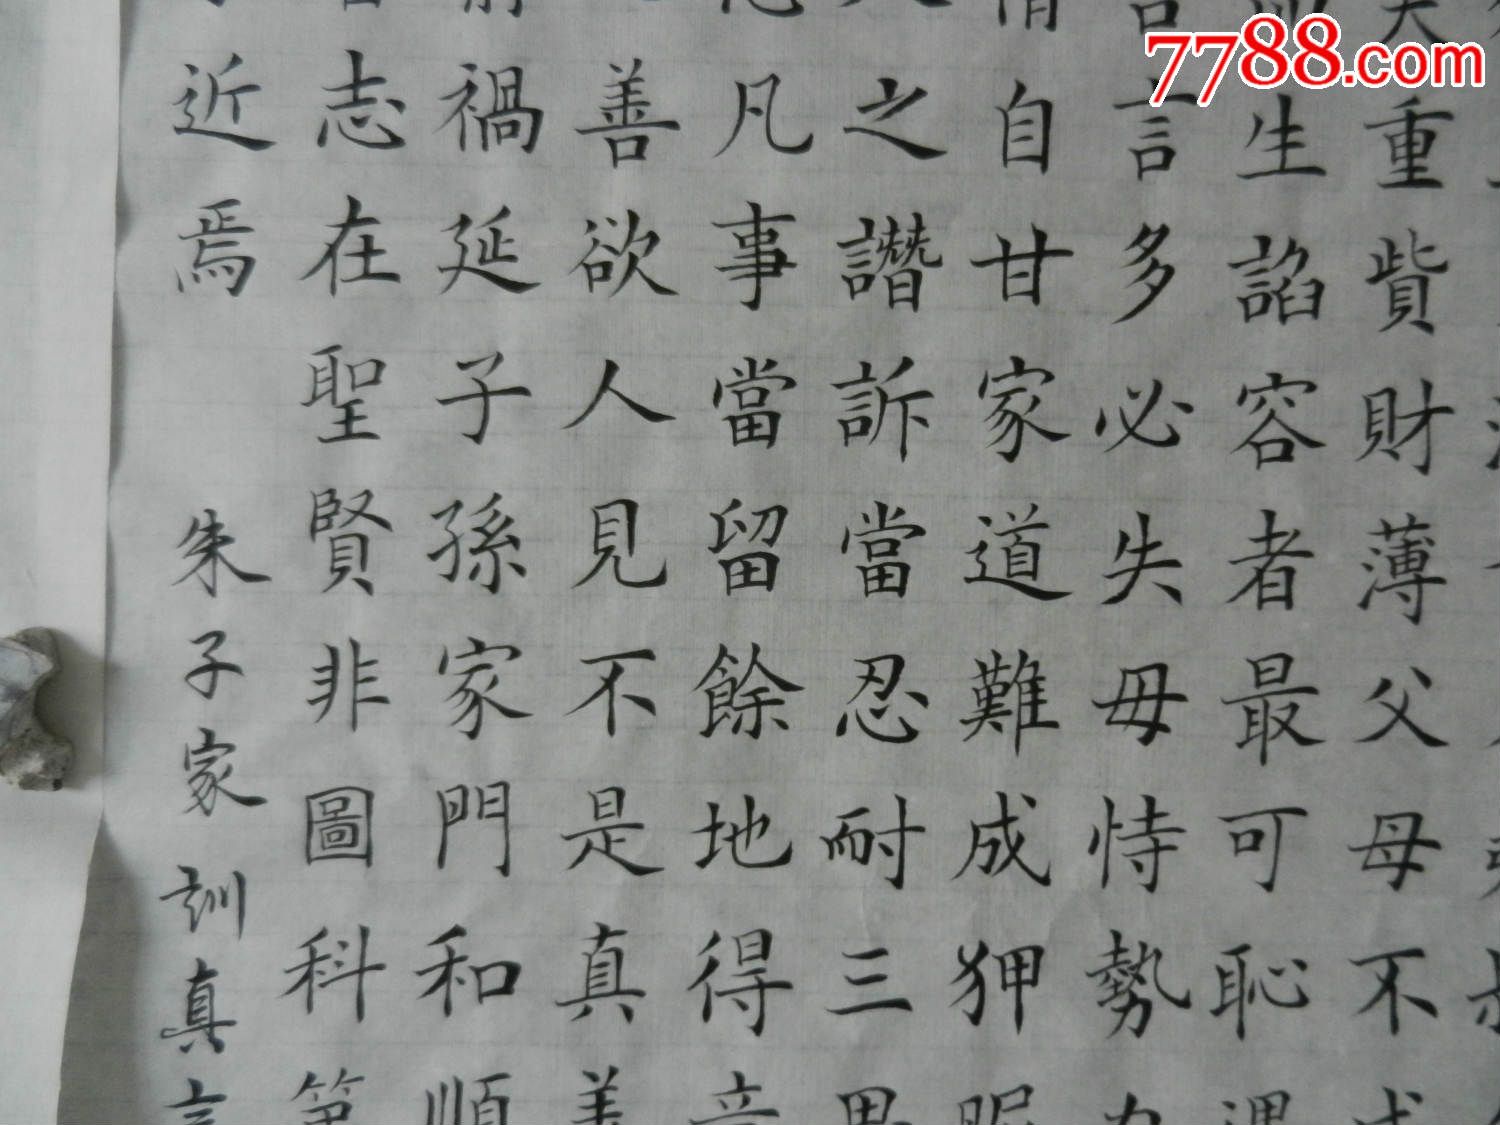 7788.com
重貲財薄父母不
生諂容者最可恥
言多必失毋恃勢
自甘家道難成狎
之譖訴當忍耐三
凡事當留餘地得
善欲人見不是真
禍延子孫家門和
志在聖賢非圖科
近焉
朱子家訓真言